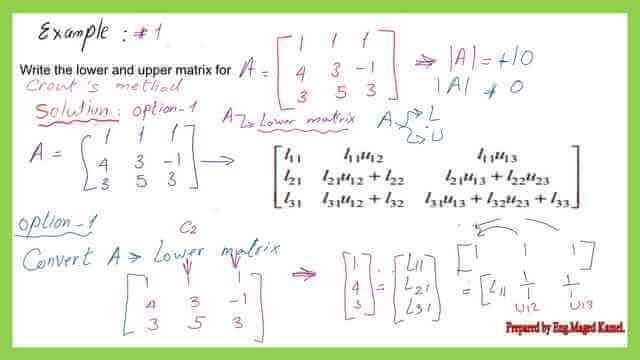 Example: #1
Write the lower and upper matrix for A = [1 1 1
4 3 -1
3 5 3] ⇒ |A| = +10
Crout's method |A| ≠ 0
Solution: option-1 A ↳ Lower matrix A → L
↳ U
A = [1 1 1
4 3 -1
3 5 3] →
[l11 l11u12 l11u13
l21 l21u12 + l22 l21u13 + l22u23
l31 l31u12 + l32 l31u13 + l32u23 + l33]
option-1
C2
Convert A → Lower matrix
[1 1 1
4 3 -1
3 5 3] ⇒
[1
4
3] = [L11
L21
L31]
[1 1 1]
= [L11 1/1 1/1
u12 u13
Prepared by Eng.Maged Kamel.